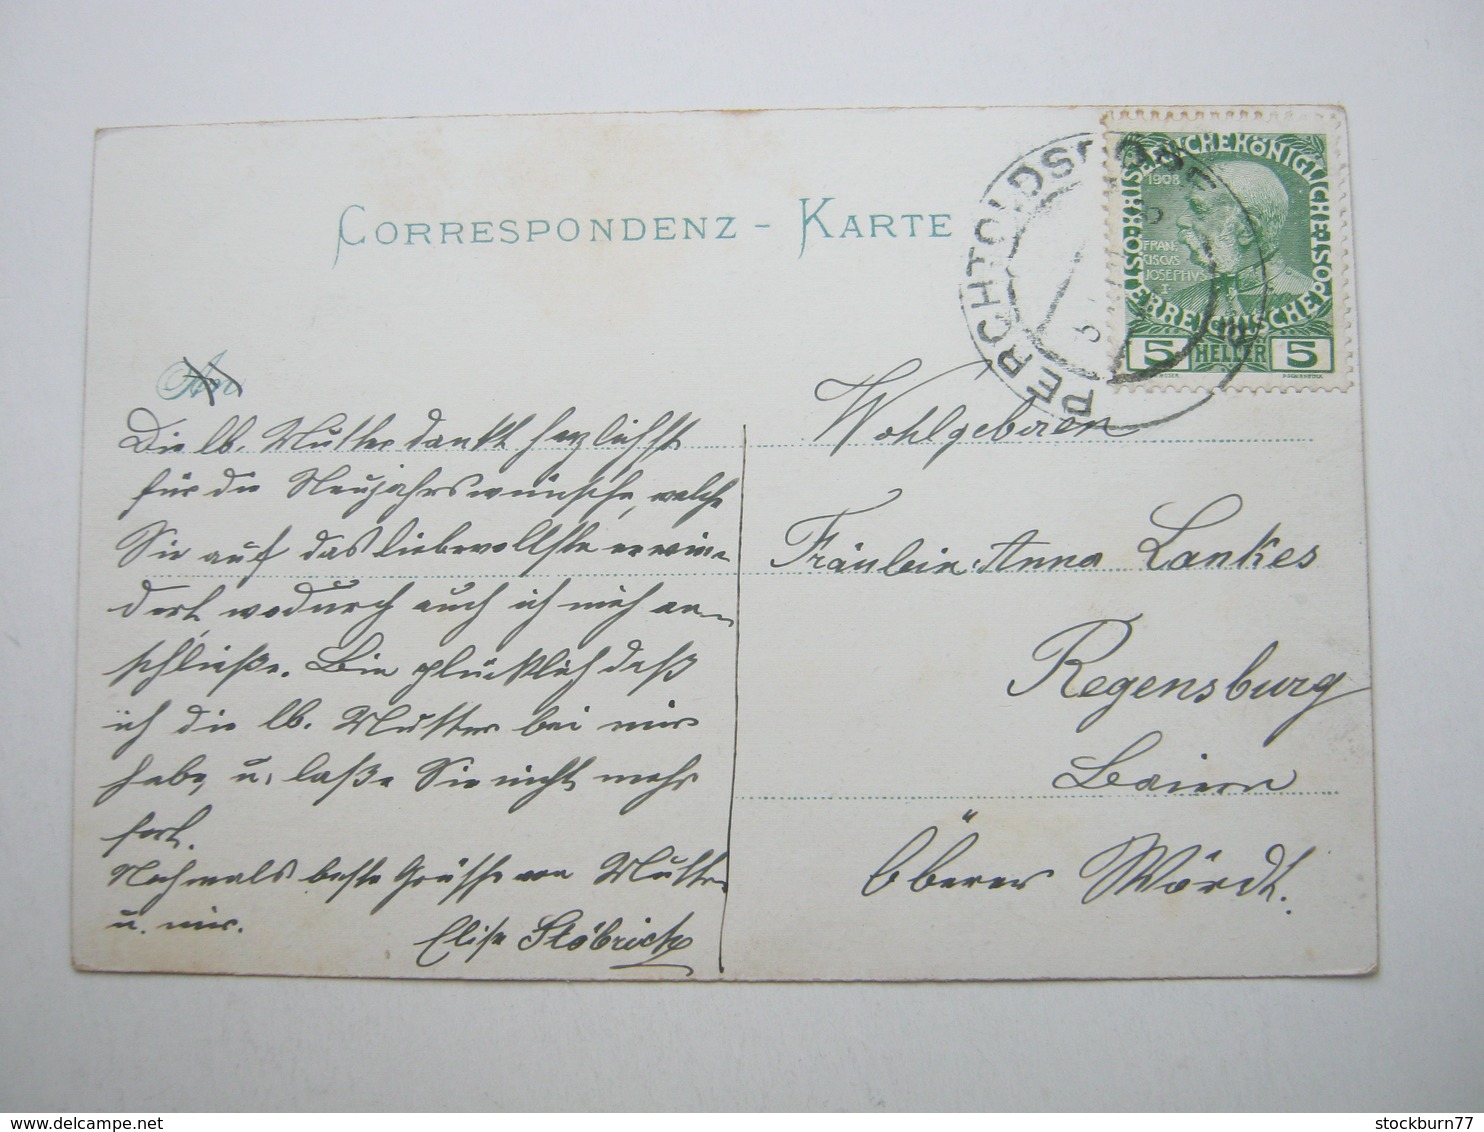 CORRESPONDENZ - KARTE
PERCHTOLDSDORF
KAISERLICHEKÖNIGLICHE
ÖSTERREICHISCHEPOST
1908
FRAN
CISCVS
JOSEPHVS
I
5 HELLER 5
An
Die lb. Mutter dankt herzlichst
für die Neujahrswünsche, welche
Sie auf das liebevollste erwie-
dert wodurch auch ich mich an-
schließe. Bin glücklich daß
ich die lb. Mutter bei mir
habe, u. laße Sie nicht mehr
fort.
Nochmals beste Grüsse von Mutter
u. mir.
Elise Stöbrich
Wohlgeboren
Fräulein Anna Lankes
Regensburg
Baiern
Oberer Wördt.
stockburn77